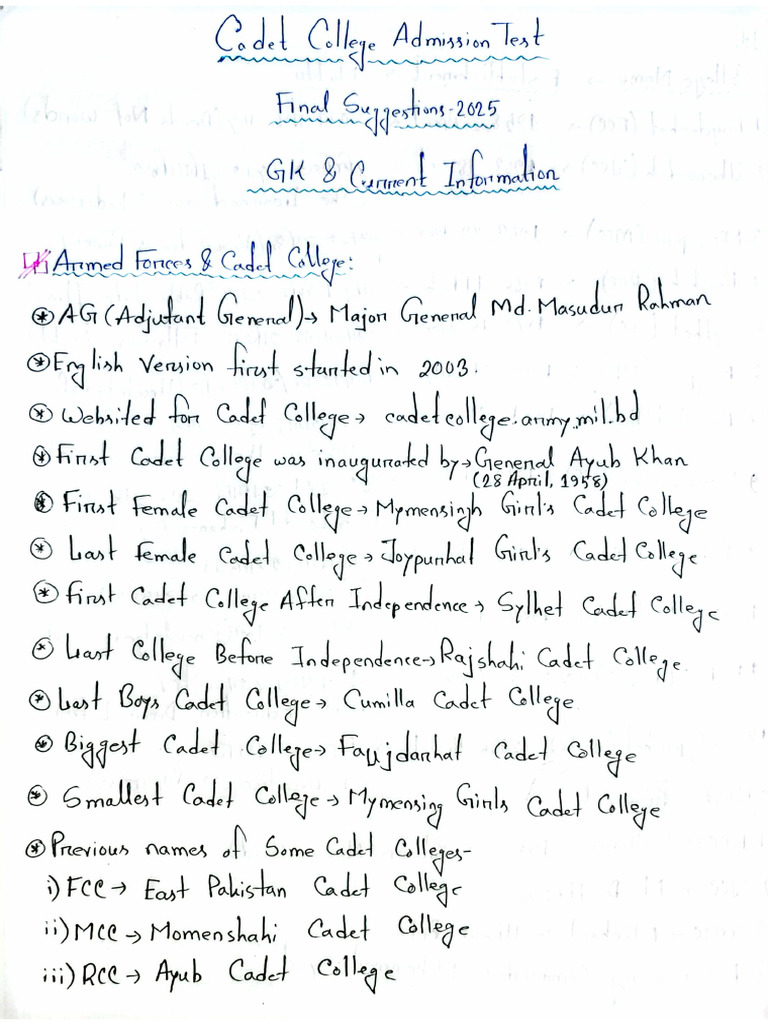 Cadet College Admission Test
Final Suggestions-2025
GK & Current Information
Armed Forces & Cadet College:
AG (Adjutant General)→ Major General Md. Masudur Rahman
English Version first started in 2003.
Websited for Cadet College→ cadetcollege.army.mil.bd
First Cadet College was inaugurated by→ General Ayub Khan
(28 April, 1958)
First Female Cadet College→ Mymensingh Girl's Cadet College
Last female Cadet College→ Joypurhat Girl's Cadet College
First Cadet College After Independence→ Sylhet Cadet College
Last College Before Independence→ Rajshahi Cadet College
Last Boys Cadet College→ Cumilla Cadet College
Biggest Cadet College→ Faujdarhat Cadet College
Smallest Cadet College→ Mymensing Girls Cadet College
Previous names of Some Cadet Colleges-
i) FCC→ East Pakistan Cadet College
ii) MCC→ Momenshahi Cadet College
iii) RCC→ Ayub Cadet College